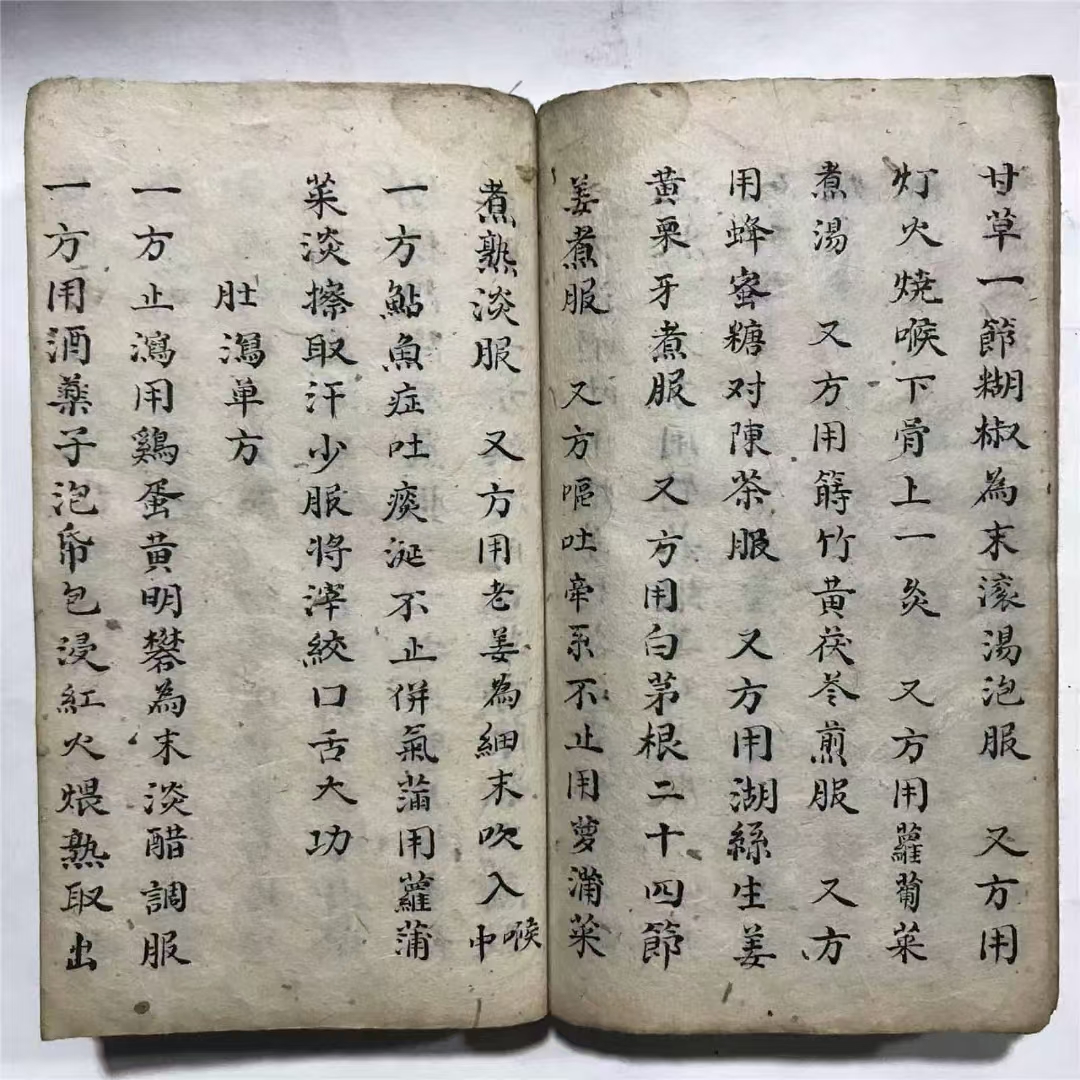 甘草一節糊椒為末滚湯泡服　又方用
灯火燒喉下骨上一灸　又方用蘿蔔菜
煮湯　又方用簕竹黃茯苓煎服　又方
用蜂蜜糖对陳茶服　又方用湖絲生姜
黃栗牙煮服　又方用白茅根二十四節
姜煮服　又方嘔吐牵系不止用萝蒲菜
煮熟淡服　又方用老姜為細末吹入喉中
一方鮎魚症吐痰涎不止併氣蒲用蘿蒲
菜淡擦取汗少服将滓絞口舌大功
肚瀉单方
一方止瀉用鷄蛋黄明礬為末淡醋調服
一方用酒藥子泡帋包浸紅火煨熟取出